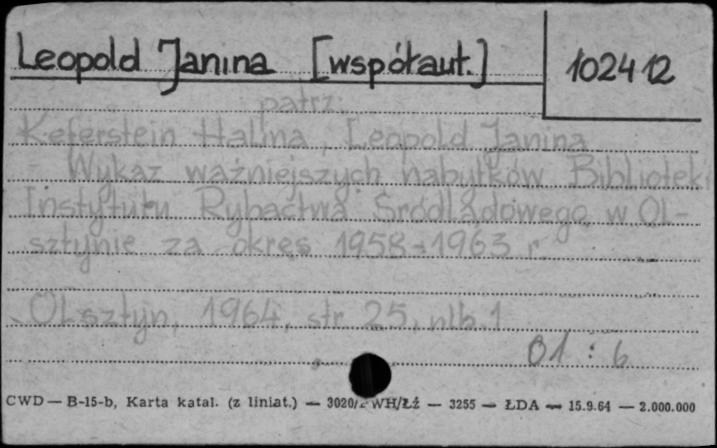 Leopold Janina [współaut.]
102412
patrz:
Keferstein Halina, Leopold Janina
Wykaz ważniejszych nabytków Biblioteki
Instytutu Rybactwa Śródlądowego w Ol-
sztynie za okres 1958-1963 r.
Olsztyn, 1964, str. 25, nlb. 1
01 : 6
CWD — B-15-b, Karta katal. (z liniat.) — 3020/ WH/Łź — 3255 — ŁDA — 15.9.64 — 2.000.000